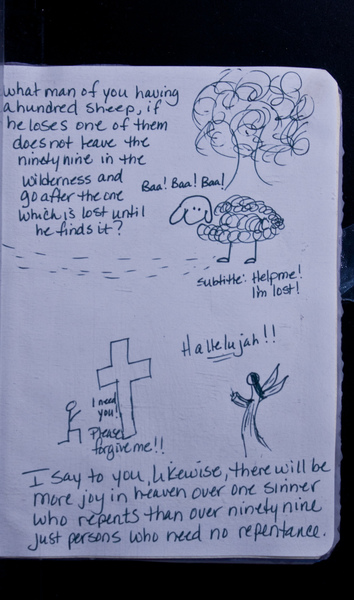 what man of you having
a hundred sheep, if
he loses one of them
does not leave the
ninety nine in the
wilderness and
go after the one
which is lost until
he finds it?
Baa! Baa! Baa!
subtitle: Help me!
I'm lost!
Hallelujah!!
I need
you!
Please
forgive me!!
I say to you, likewise, there will be
more joy in heaven over one sinner
who repents than over ninety nine
just persons who need no repentance.